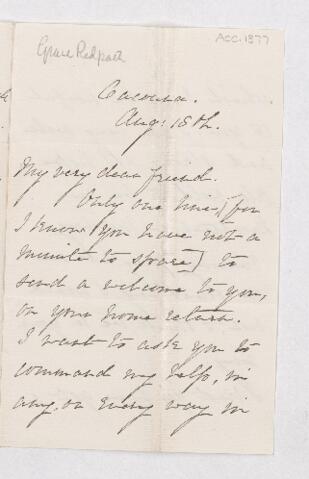 Grace Redpath
ACC. 1877
Cacouna.
Aug: 18th.
My very dear friend.
Only one line [for
I know you have not a
minute to spare] to
send a welcome to you,
on your home return.
I want to ask you to
command my help, in
any, or every way in